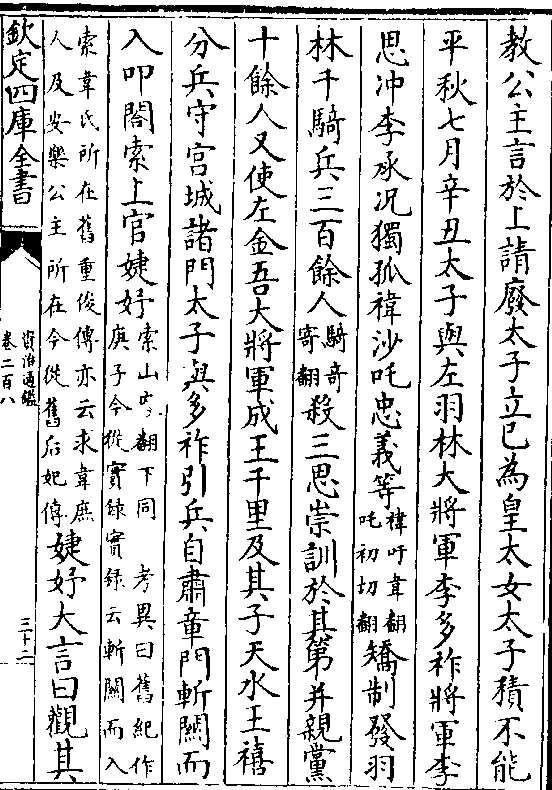 教公主言於上請廢太子立已為皇太女太子積不能
平秋七月辛丑太子與左羽林大將軍李多祚將軍李
思冲李承况獨孤禕沙吒忠義等禕吁韋翻吒初切翻矯制發羽
林千騎兵三百餘人騎竒寄翻殺三思崇訓於其第并親黨
十餘人又使左金吾大將軍成王千里及其子天水王禧
分兵守宫城諸門太子與多祚引兵自肅章門斬關而
入叩閤索上官婕妤索山翻下同考異曰舊紀作庚子今從實録實録云斬關而入
索韋氏所在舊重俊傳亦云求韋庶人及安樂公主所在今從舊后妃傳婕妤大言曰觀其
欽定四庫全書
資治通鑑
卷二百八
三十二